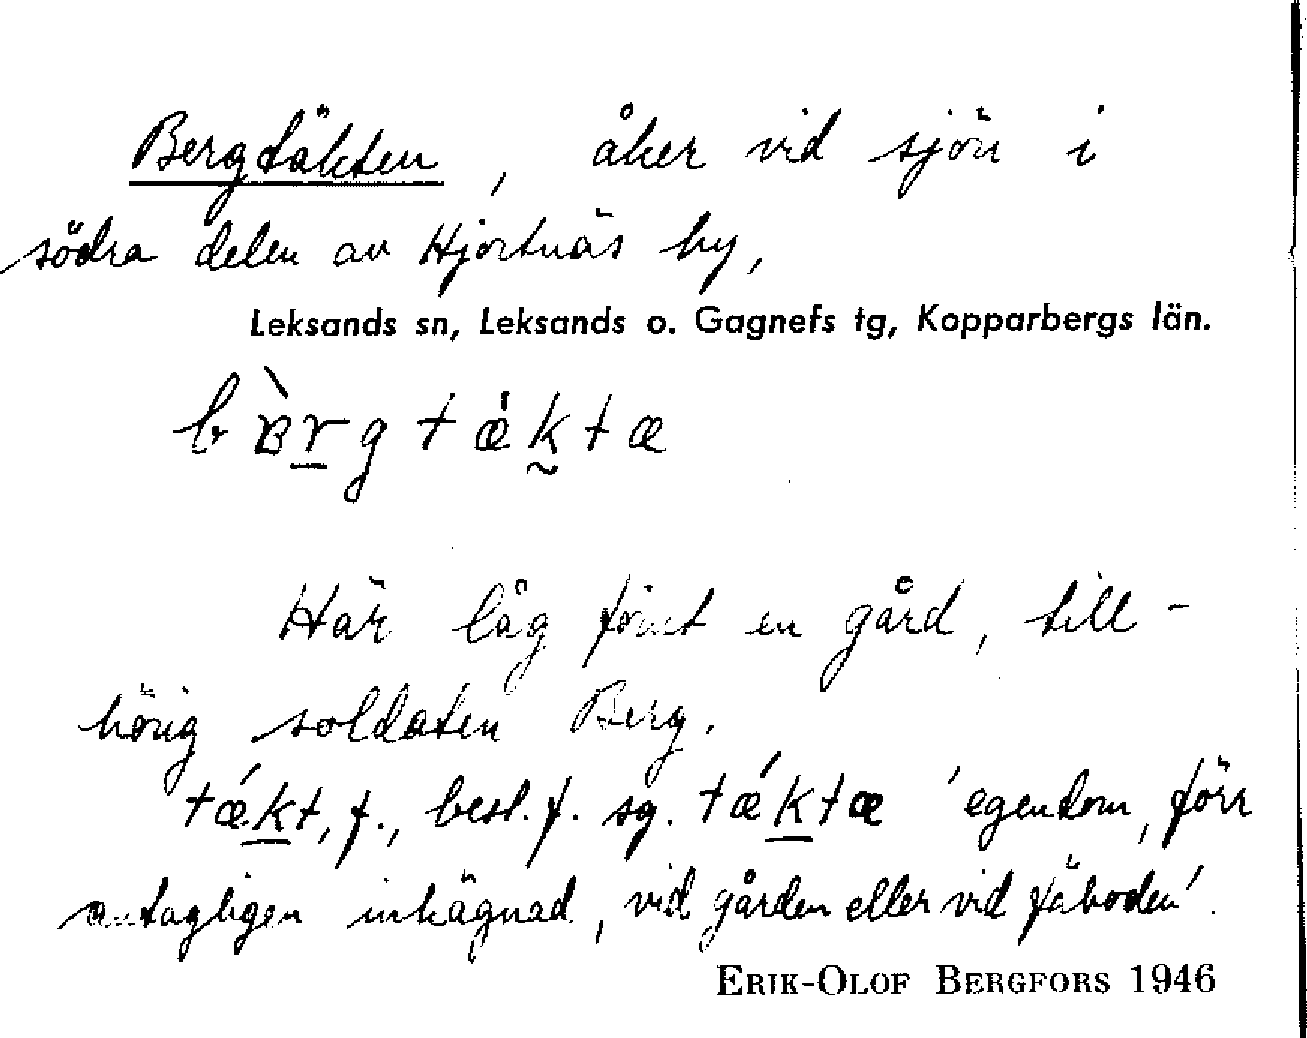 Bergtäkten, åker vid sjön i
södra delen av Hjortnäs by,
Leksands sn, Leksands o. Gagnefs tg, Kopparbergs län.
bɞ̀r̲gtǽk̰tæ
Här låg förut en gård, till-
hörig soldaten Berg.
tǽk̲t, f., best. f. sg. tǽk̲tæ 'egendom, förr
antagligen inhägnad, vid gården eller vid fäboden'.
ERIK-OLOF BERGFORS 1946